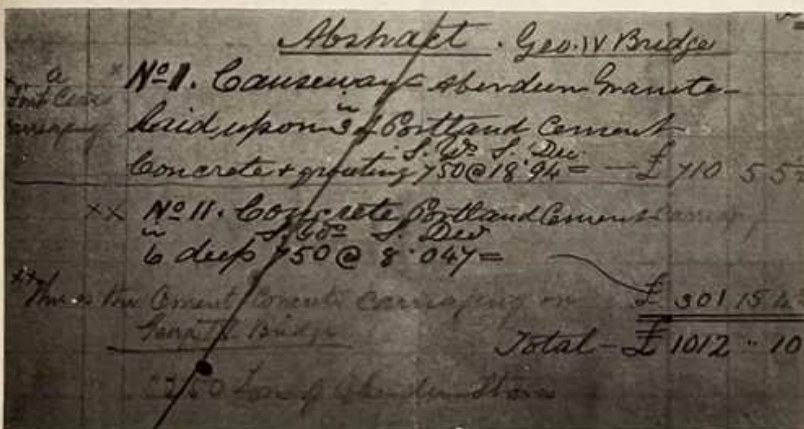 Abstract . Geo. IV Bridge
a × No I. Causeway Aberdeen Granite
laid upon 3 in of Portland Cement
S. Yds S. Dec
Concrete + grouting 750 @ 18.94 = — £ 710 5
×× No II. Concrete Portland Cement
in S. Yds S. Dec
6 deep 750 @ 8.047 = £ 301 15
×× This is the Cement Concrete carriageway on
George IV Bridge
Total — £ 1012 " 10
250 Tons of Aberdeen Stone